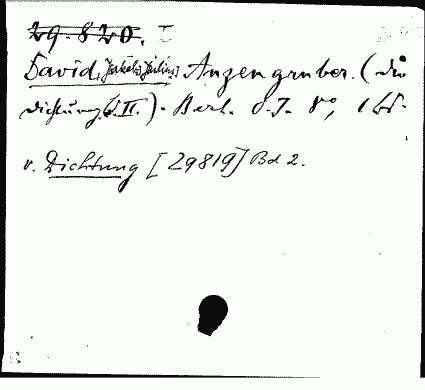 29.820. I
David, Jakob Julius, Anzengruber. (Die
Dichtung, II.). Berl. o.J. 8°, 1 Bd.
v. Dichtung [29819] Bd 2.